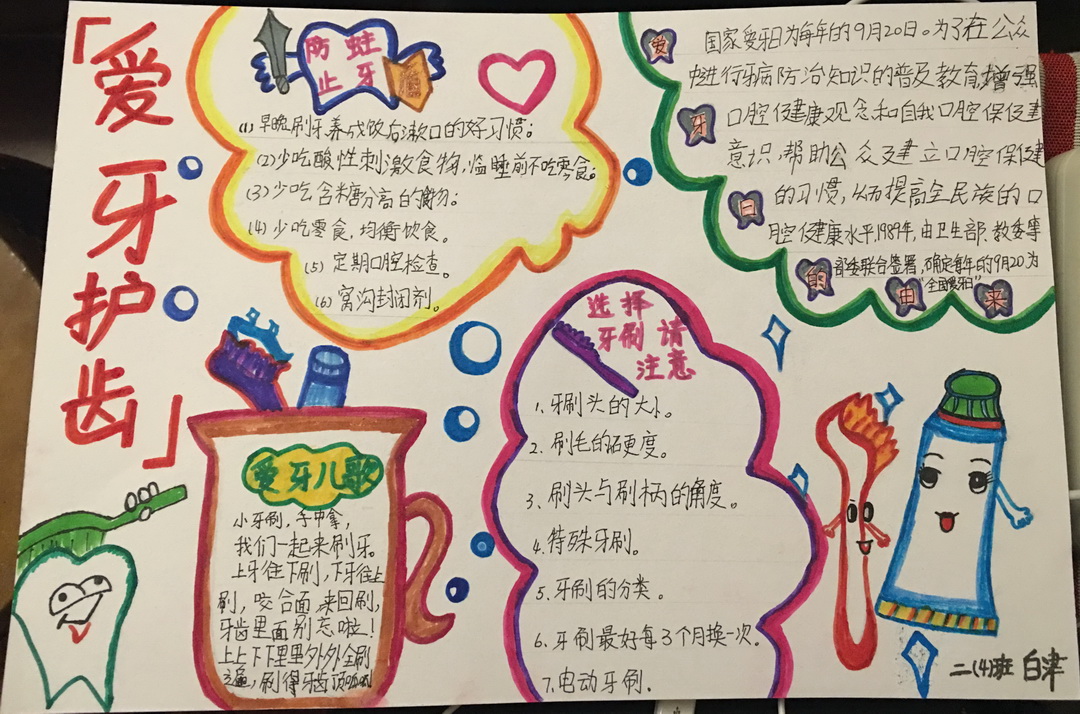 「爱牙护齿」
防蛀
止牙
(1) 早晚刷牙养成饭后漱口的好习惯；
(2) 少吃酸性刺激食物，临睡前不吃零食；
(3) 少吃含糖分高的食物；
(4) 少吃零食，均衡饮食。
(5) 定期口腔检查。
(6) 窝沟封闭剂。
爱牙日的由来
国家爱牙日为每年的9月20日。为了在公众
中进行牙病防治知识的普及教育，增强
口腔健康观念和自我口腔保健
意识，帮助公众建立口腔保健
的习惯，从而提高全民族的口
腔健康水平，1989年，由卫生部、教委等
部委联合签署，确定每年的9月20为
“全国爱牙日”
选择
牙刷请
注意
1. 牙刷头的大小。
2. 刷毛的硬度。
3. 刷头与刷柄的角度。
4. 特殊牙刷。
5. 牙刷的分类。
6. 牙刷最好每3个月换一次。
7. 电动牙刷.
爱牙儿歌
小牙刷，手中拿，
我们一起来刷牙。
上牙往下刷，下牙往上
刷，咬合面来回刷，
牙齿里面别忘啦！
上上下下里里外外全刷
遍，刷得牙齿顶呱呱
二(4)班 白津